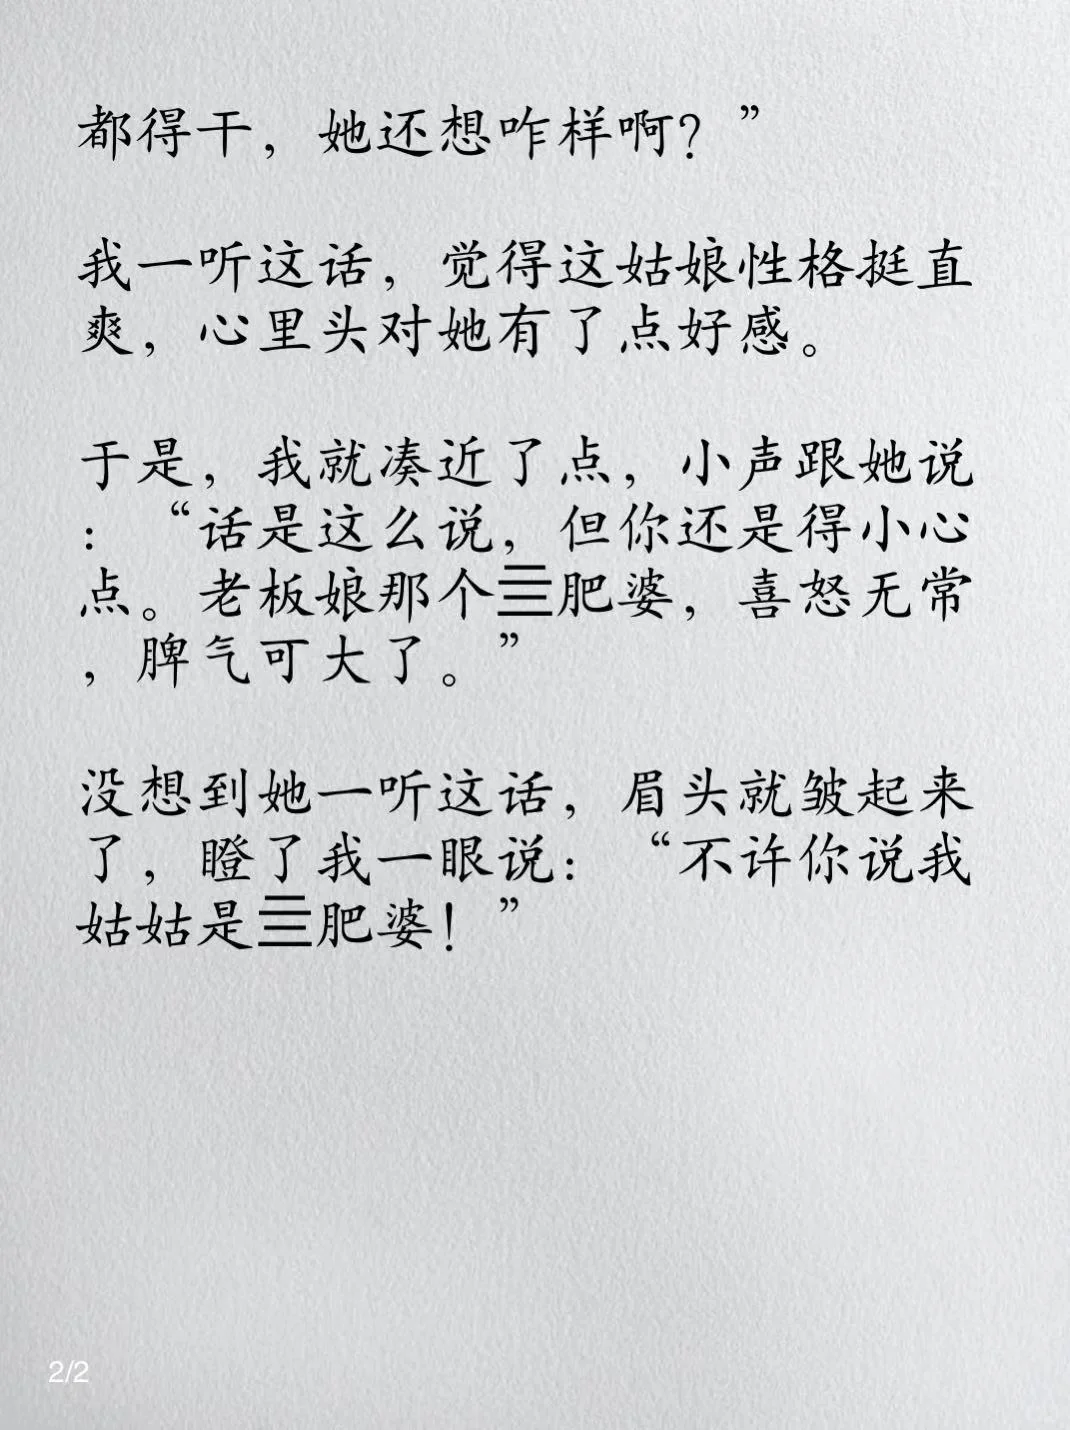 都得干，她还想咋样啊？”
我一听这话，觉得这姑娘性格挺直
爽，心里头对她有了点好感。
于是，我就凑近了点，小声跟她说
：“话是这么说，但你还是得小心
点。老板娘那个亖肥婆，喜怒无常
，脾气可大了。”
没想到她一听这话，眉头就皱起来
了，瞪了我一眼说：“不许你说我
姑姑是亖肥婆！”
2/2